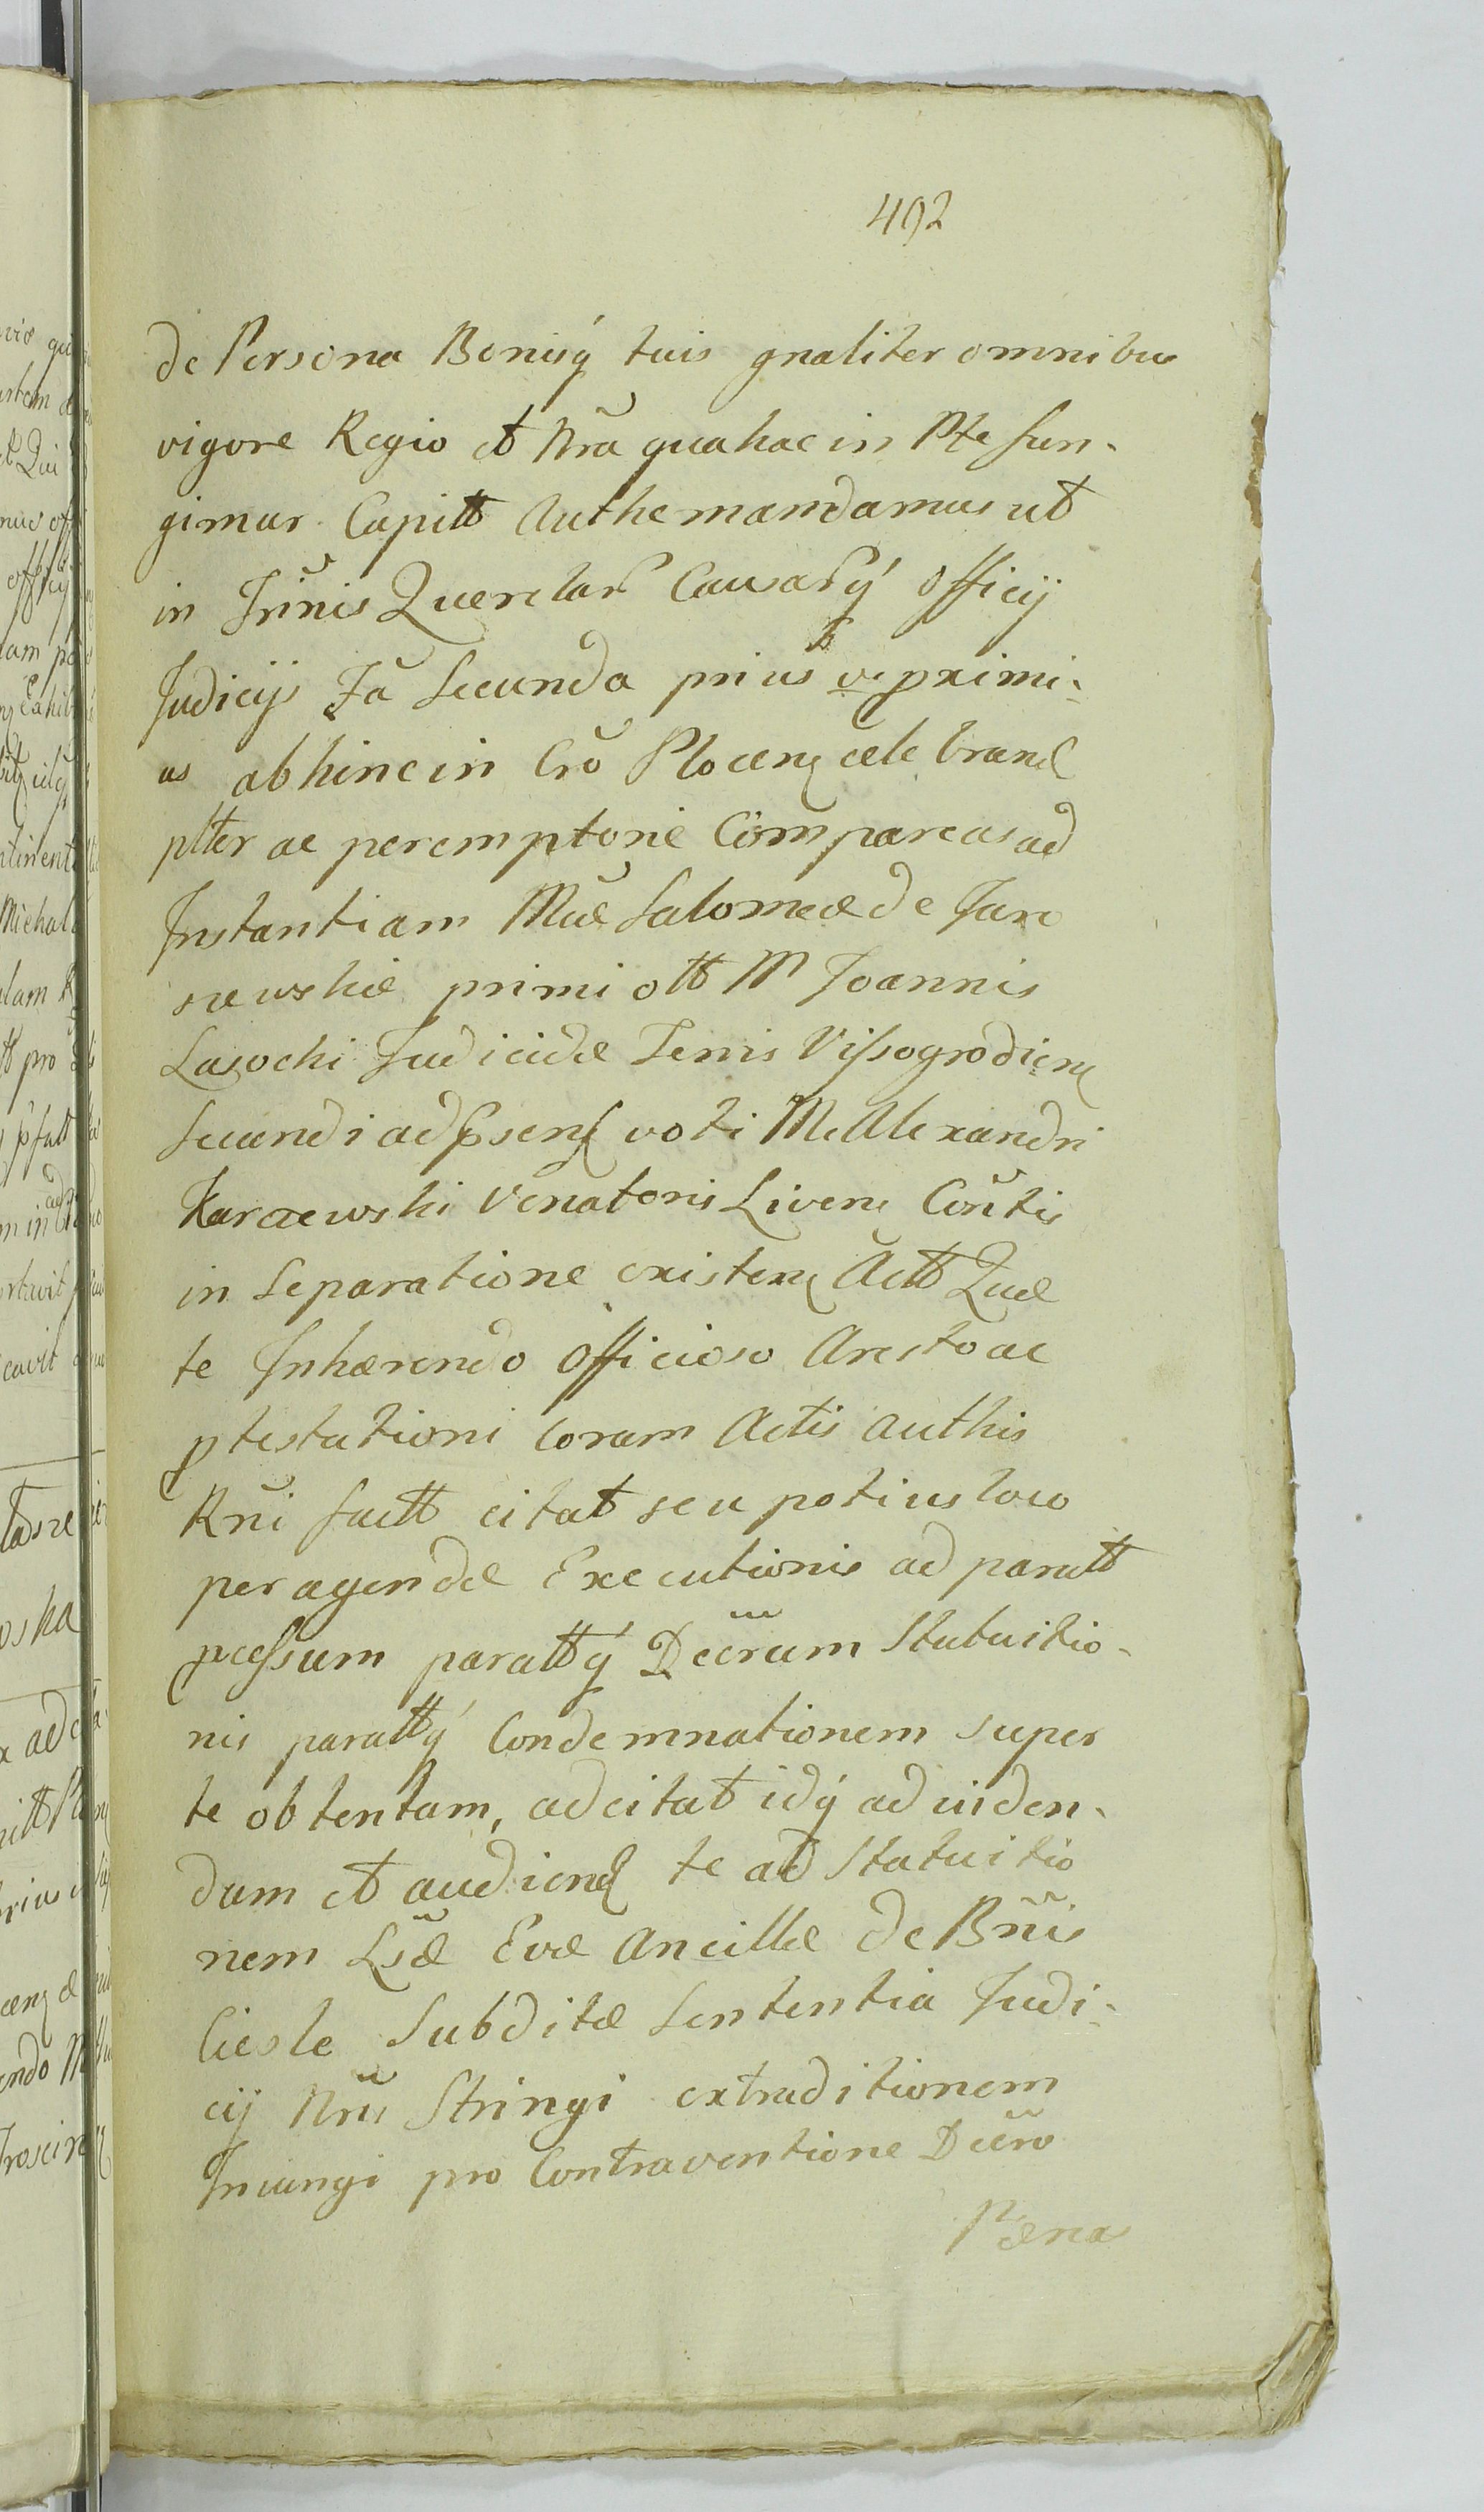 492
de Persona Bonisq́ tuis gnaliter omnibus
vigore Regio et Nrã qua hac in Pte fun-
gimur Capitt Authe mandamus ut
in Trm̃nis Querelar Causarq́ Officij
Judicijs Fã Secunda prius et proximi-
us abhinc in Crõ Plocen celebrand
pltter ac peremptorie Compareas ad
Instantiam Mũae Salomeae de Jaro
szewskie primi ott M Joannis
Lasocki Judicidae Terris Vissogrodien
secundi ad psens voti M Alexandri
Karczewski Venatoris Livens Coñtis
in Separatione existen Actt Quae
te Inhaerendo Officioso Aresto ac
ptestationi coram Actis Authis
Rñi factt citat seu potius loco
peragendae Executionis ad paratt
pcessum parattq́ Decr̃um Statuitio-
nis parattq́ Condemnationem super
te obtentam, adcitat idq́ ad viden-
dum et audiend te ad Statuitio
nem Lsae Evae Ancillae de Bñis
Ciesle Subditae Sententia Judi-
cij Nri Stringi extraditionem
Iniungi pro Contraventione Decr̃o
Paena